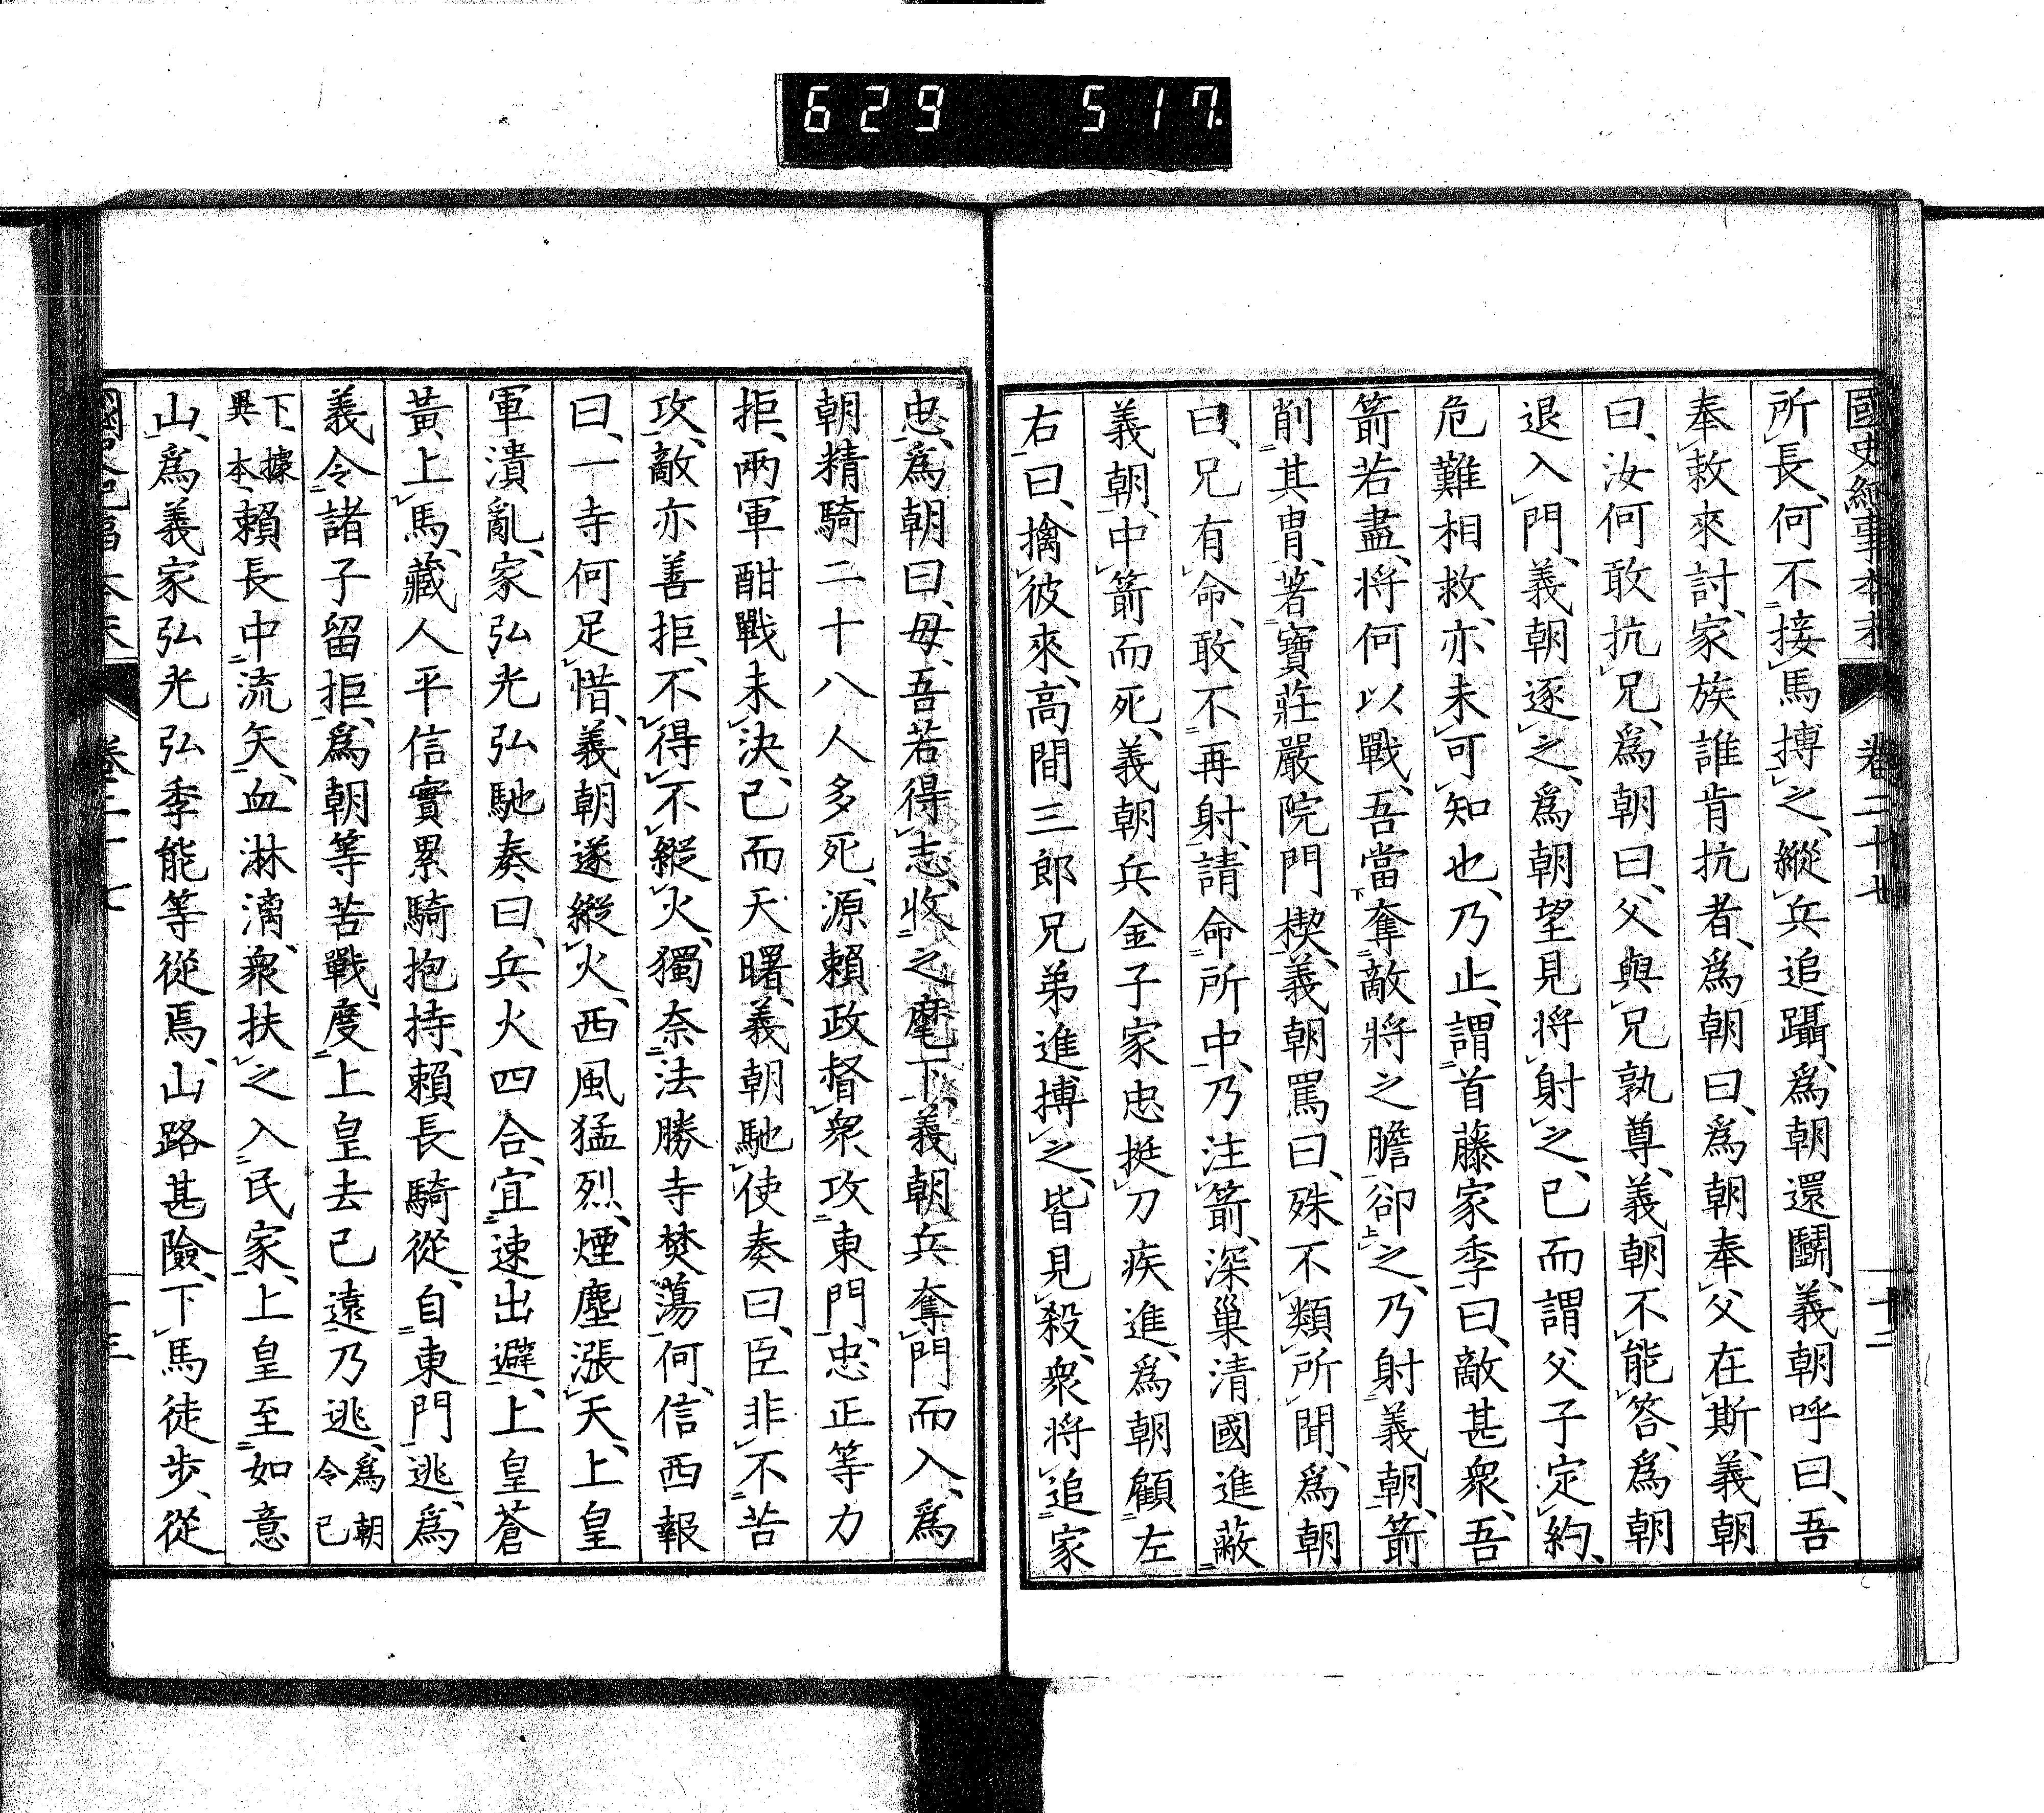 629 517
國史紀事本末 卷二十七 十二
所長、何不接馬搏之、縱兵追躡、爲朝還鬭、義朝呼曰、吾
奉敕來討、家族誰肯抗者、爲朝曰、爲朝奉父在斯、義朝
曰、汝何敢抗兄、爲朝曰、父與兄孰尊、義朝不能答、爲朝
退入門、義朝逐之、爲朝望見將射之、已而謂父子定約、
危難相救、亦未可知也、乃止、謂首藤家季曰、敵甚衆、吾
箭若盡、將何以戰、吾當奪敵將之膽卻之、乃射義朝、箭
削其冑、著寶莊嚴院門楔、義朝罵曰、殊不類所聞、爲朝
曰、兄有命、敢不再射、請命所中、乃注箭、深巢清國進蔽
義朝、中箭而死、義朝兵金子家忠挺刀疾進、爲朝顧左
右曰、擒彼來、高間三郎兄弟進搏之、皆見殺、衆將追家
忠、爲朝曰、毋、吾若得志、收之麾下、義朝兵奪門而入、爲
朝精騎二十八人多死、源賴政督衆、攻東門、忠正等力
拒、兩軍酣戰未決、已而天曙、義朝馳使奏曰、臣非不苦
攻、敵亦善拒、不得不縱火、獨奈法勝寺焚蕩何、信西報
曰、一寺何足惜、義朝遂縱火、西風猛烈、煙塵漲天、上皇
軍潰亂、家弘光弘馳奏曰、兵火四合、宜速出避、上皇蒼
黃上馬、藏人平信實累騎抱持、賴長騎從、自東門逃、爲
義令諸子留拒、爲朝等苦戰、度上皇去已遠、乃逃、爲朝令已
下、據異本、賴長中流矢、血淋漓、衆扶之入民家、上皇至如意
山、爲義家弘光弘季能等從焉、山路甚險、下馬徒步、從
卷二十七 十三